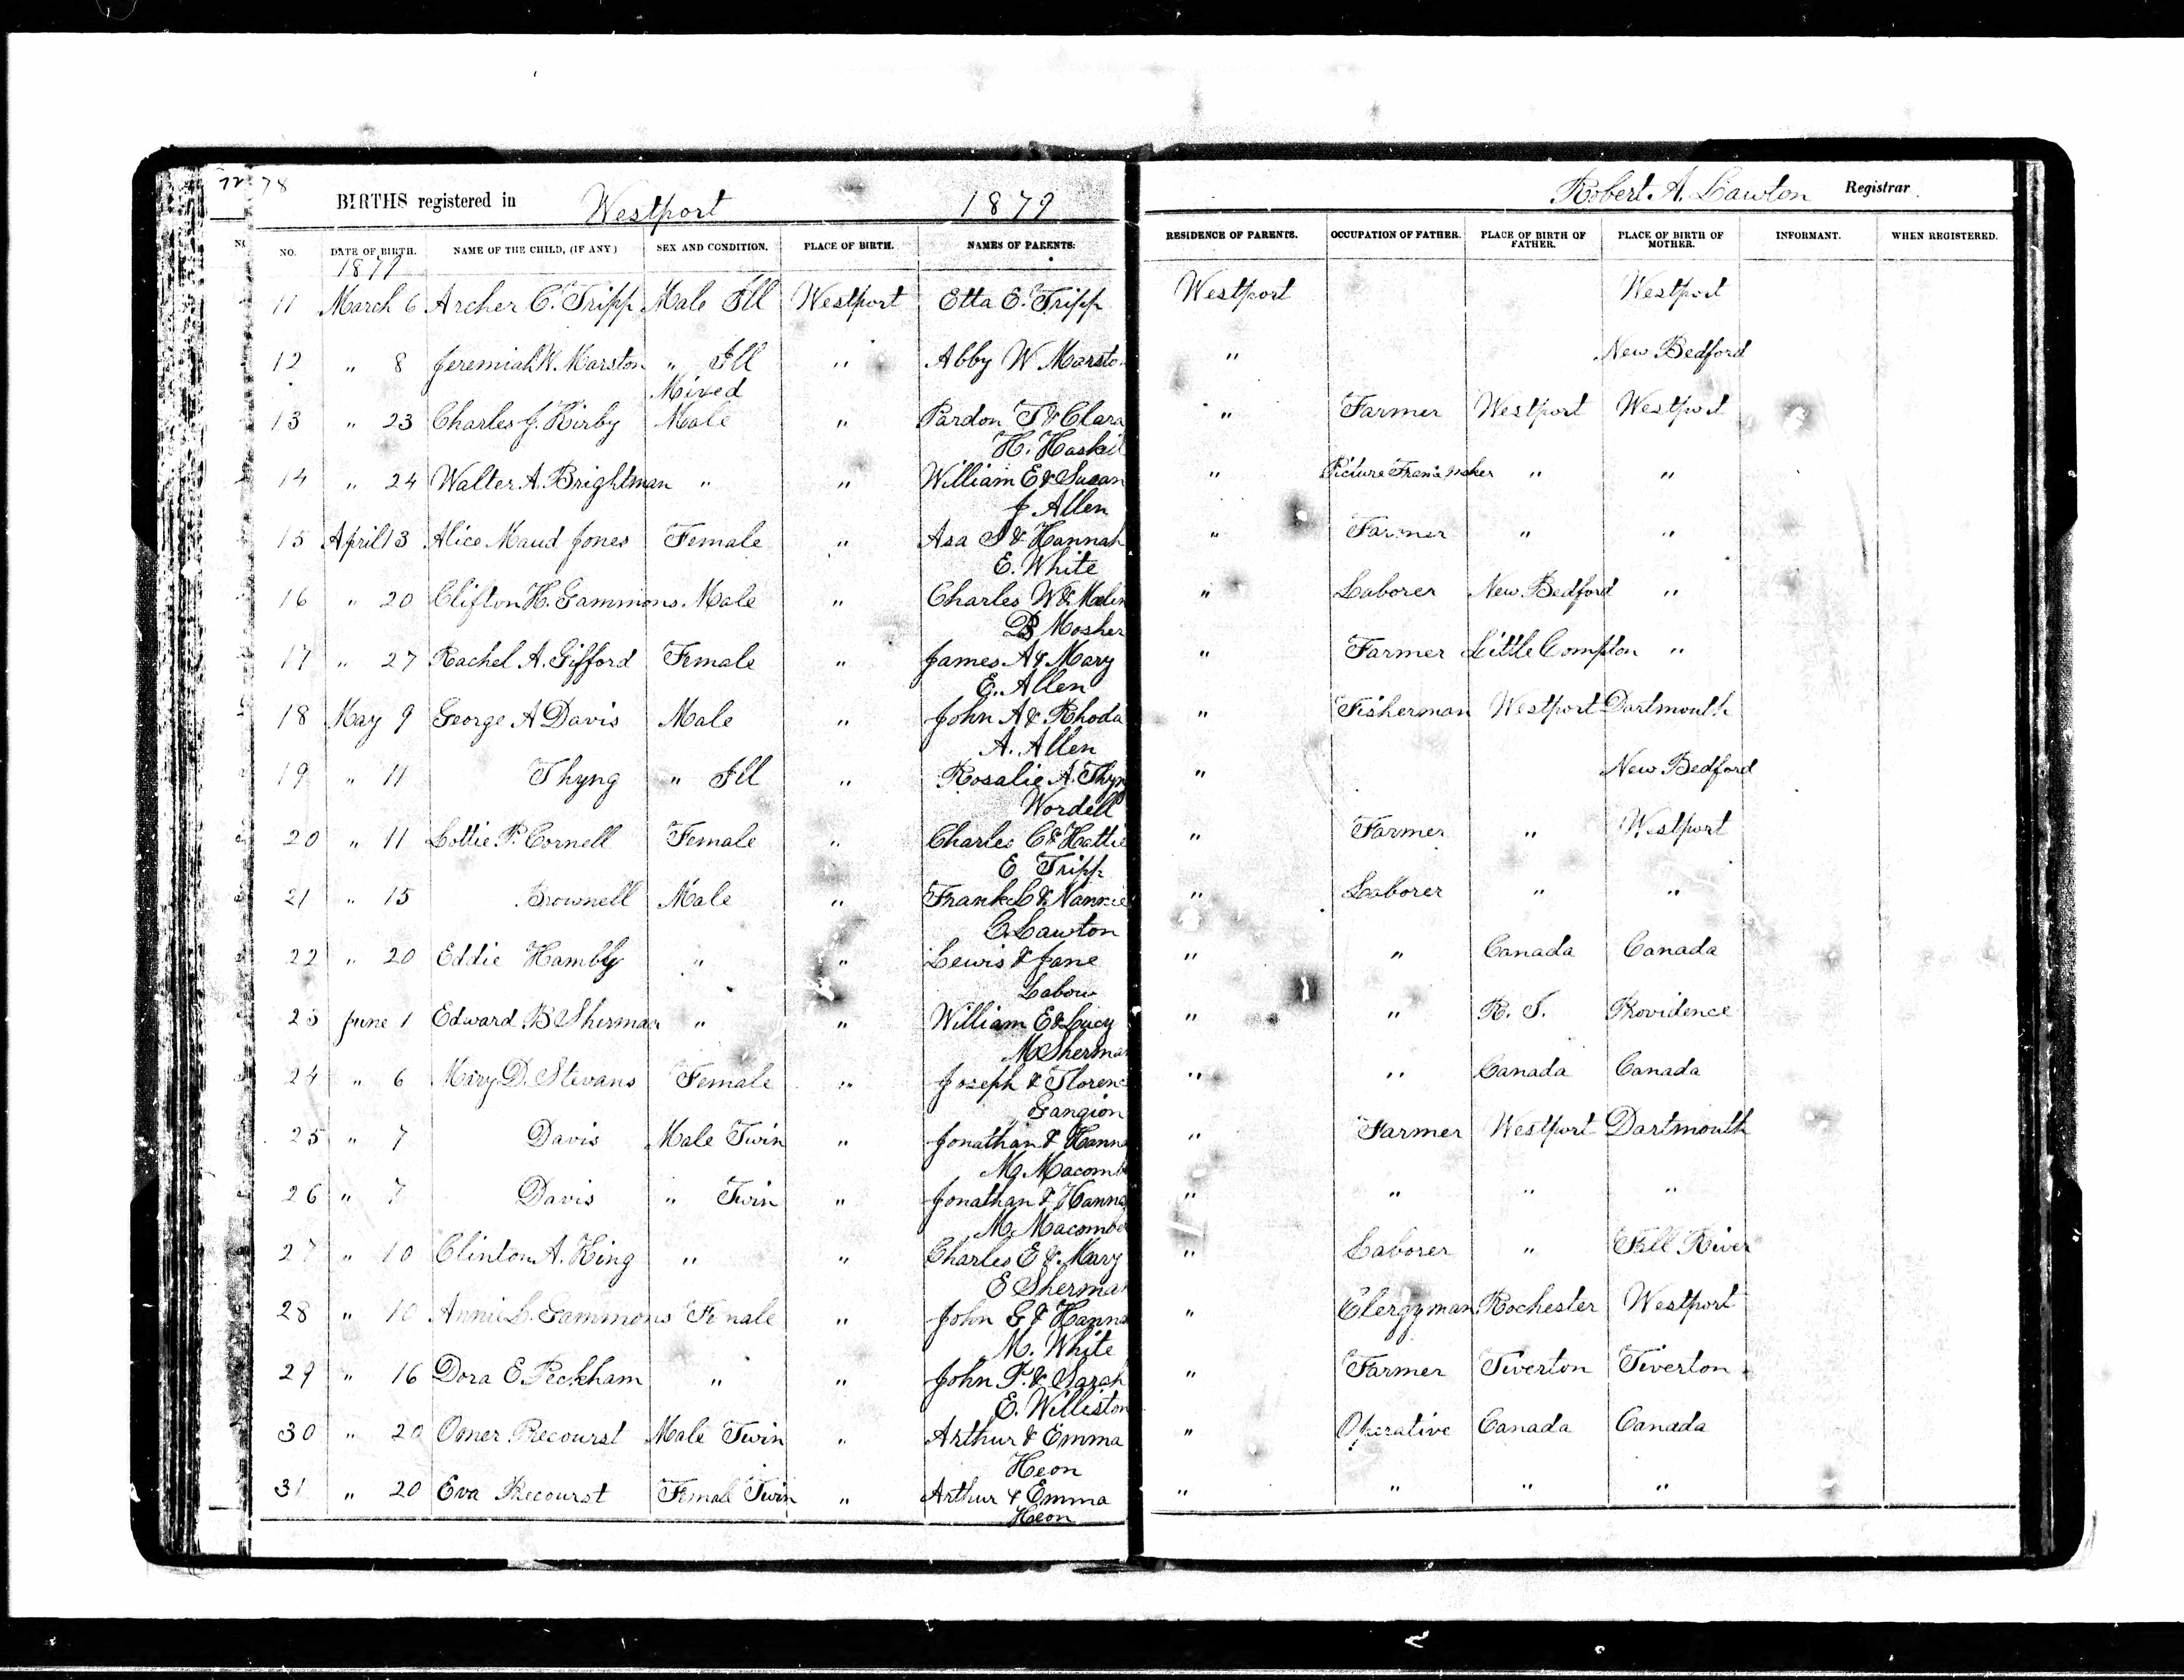 72 78
BIRTHS registered in Westport 1879 Robert A. Lawton Registrar
NO. DATE OF BIRTH. NAME OF THE CHILD, (IF ANY) SEX AND CONDITION. PLACE OF BIRTH. NAMES OF PARENTS: RESIDENCE OF PARENTS. OCCUPATION OF FATHER. PLACE OF BIRTH OF FATHER. PLACE OF BIRTH OF MOTHER. INFORMANT. WHEN REGISTERED.
1879
11 March 6 Archer C. Tripp Male Ill Westport Etta E. Tripp Westport Westport
12 " 8 Jeremiah W. Marston " Ill " Abby W Marston " New Bedford
Mixed
13 " 23 Charles J. Kirby Male " Pardon T & Clara " Farmer Westport Westport
H. Haskil
14 " 24 Walter A. Brightman " " William E & Susan " Picture Frame maker " "
J Allen
15 April 13 Alice Maud Jones Female " Asa S & Hannah " Farmer " "
E. White
16 " 20 Clifton H. Gammons. Male " Charles W & Melin " Laborer New Bedford "
B Mosher
17 " 27 Rachel A. Gifford Female " James A & Mary " Farmer Little Compton "
E. Allen
18 May 9 George A Davis Male " John A & Rhoda " Fisherman Westport Dartmouth
A. Allen
19 " 11 Thyng " Ill " Rosalie A. Thyn " New Bedford
Wordell
20 " 11 Lottie P. Cornell Female " Charles C & Hattie " Farmer " Westport
E Tripp
21 " 15 Brownell Male " Frank C & Nannie " Laborer " "
C. Lawton
22 " 20 Eddie Hambly " " Lewis & Jane " " Canada Canada
Labow
23 June 1 Edward B Sherman " " William E & Lucy " " R. I. Providence
M Sherma
24 " 6 Mary D. Stevans Female " Joseph & Florenc " " Canada Canada
Gangion
25 " 7 Davis Male Twin " Jonathan & Hanna " Farmer Westport Dartmouth
M Macomb
26 " 7 Davis " Twin " Jonathan & Hanna " " " "
M. Macombe
27 " 10 Clinton A. King " " Charles E & Mary " Laborer " Fall River
E Sherma
28 " 10 Annie L. Gammons Female " John G & Hanna " Clergyman Rochester Westport
M. White
29 " 16 Dora E. Peckham " " John P. & Sarah " Farmer Tiverton Tiverton
E. Williston
30 " 20 Omer Precourst Male Twin " Arthur & Emma " Operative Canada Canada
Heon
31 " 20 Eva Precourst Female Twin " Arthur & Emma " " " "
Heon